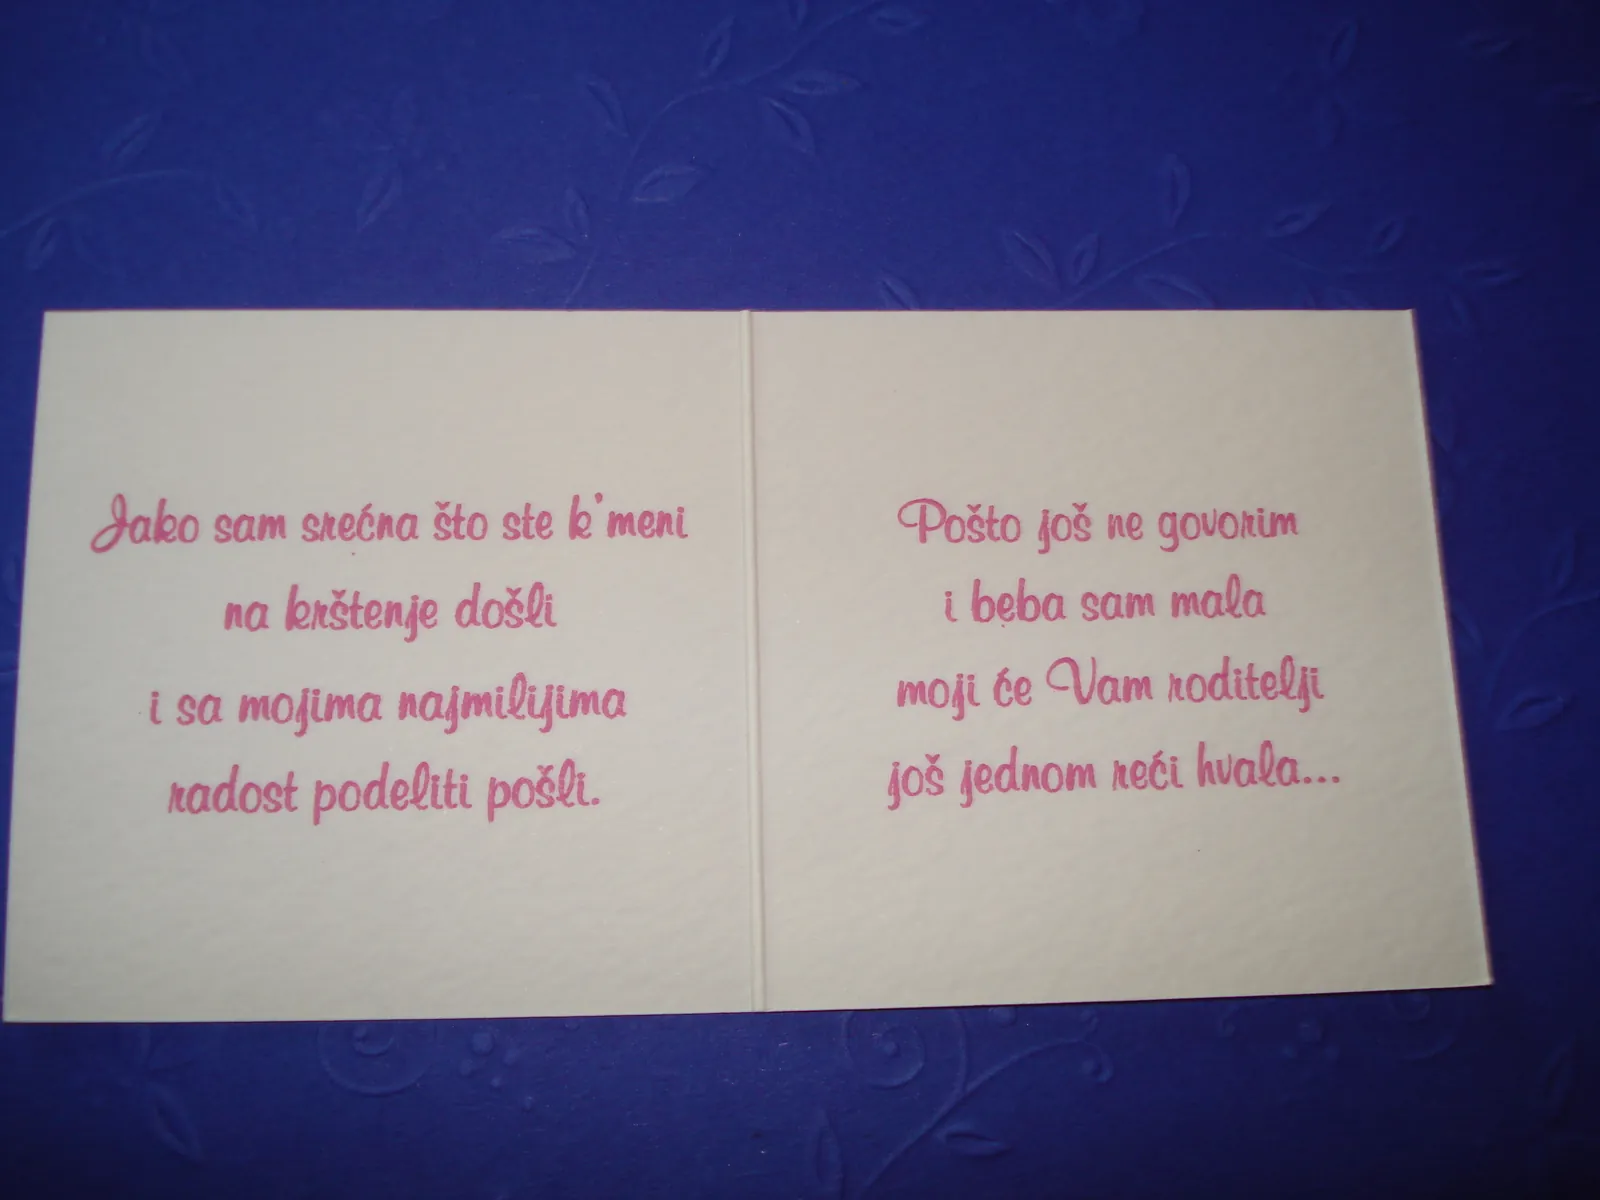 Jako sam srećna što ste k'meni
na krštenje došli
i sa mojima najmilijima
radost podeliti pošli.
Pošto još ne govorim
i beba sam mala
moji će Vam roditelji
još jednom reći hvala...